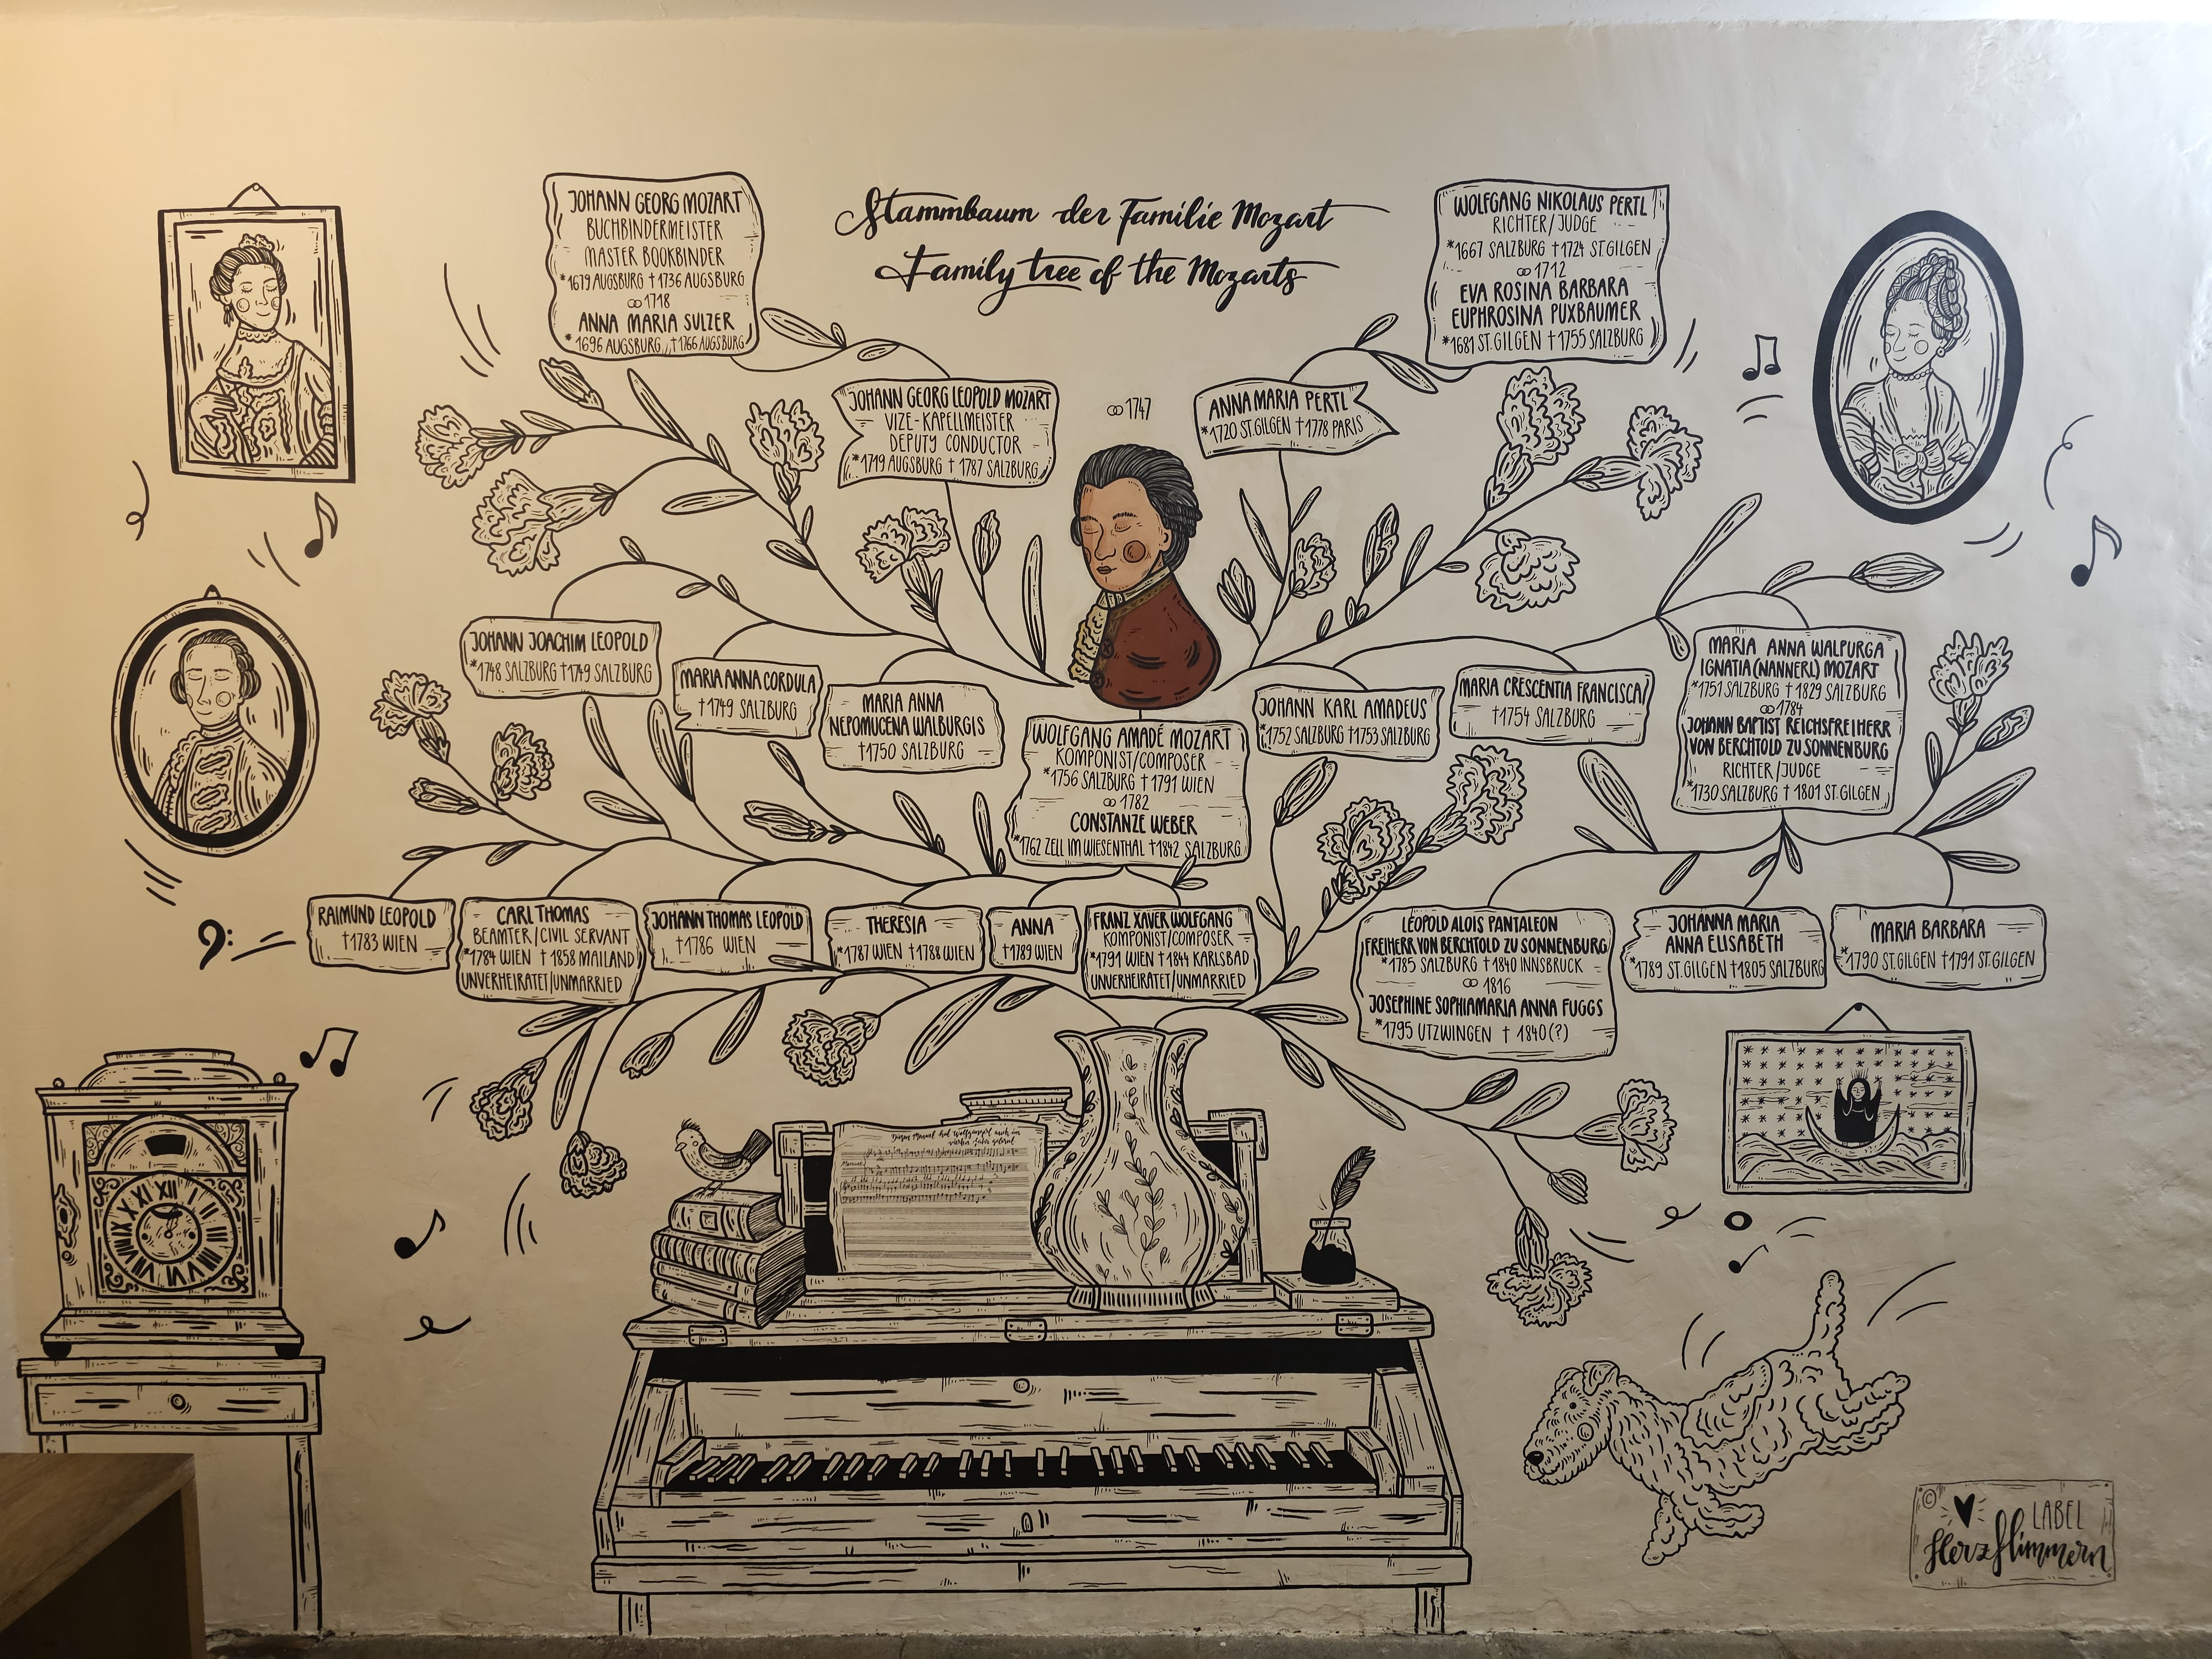 Stammbaum der Familie Mozart
Family tree of the Mozarts
JOHANN GEORG MOZART
BUCHBINDERMEISTER
MASTER BOOKBINDER
*1679 AUGSBURG †1736 AUGSBURG
⚭ 1718
ANNA MARIA SULZER
*1696 AUGSBURG †1766 AUGSBURG
WOLFGANG NIKOLAUS PERTL
RICHTER/JUDGE
*1667 SALZBURG †1724 ST.GILGEN
⚭ 1712
EVA ROSINA BARBARA
EUPHROSINA PUXBAUMER
*1681 ST.GILGEN †1755 SALZBURG
JOHANN GEORG LEOPOLD MOZART
VIZE-KAPELLMEISTER
DEPUTY CONDUCTOR
*1719 AUGSBURG †1787 SALZBURG
⚭ 1747
ANNA MARIA PERTL
*1720 ST.GILGEN †1778 PARIS
JOHANN JOACHIM LEOPOLD
*1748 SALZBURG †1749 SALZBURG
MARIA ANNA CORDULA
†1749 SALZBURG
MARIA ANNA
NEPOMUCENA WALBURGIS
†1750 SALZBURG
WOLFGANG AMADÉ MOZART
KOMPONIST/COMPOSER
*1756 SALZBURG †1791 WIEN
⚭ 1782
CONSTANZE WEBER
*1762 ZELL IM WIESENTHAL †1842 SALZBURG
JOHANN KARL AMADEUS
*1752 SALZBURG †1753 SALZBURG
MARIA CRESCENTIA FRANCISCA
†1754 SALZBURG
MARIA ANNA WALPURGA
IGNATIA (NANNERL) MOZART
*1751 SALZBURG †1829 SALZBURG
⚭ 1784
JOHANN BAPTIST REICHSFREIHERR
VON BERCHTOLD ZU SONNENBURG
RICHTER/JUDGE
*1730 SALZBURG †1801 ST.GILGEN
RAIMUND LEOPOLD
†1783 WIEN
CARL THOMAS
BEAMTER/CIVIL SERVANT
*1784 WIEN †1858 MAILAND
UNVERHEIRATET/UNMARRIED
JOHANN THOMAS LEOPOLD
†1786 WIEN
THERESIA
*1787 WIEN †1788 WIEN
ANNA
†1789 WIEN
FRANZ XAVER WOLFGANG
KOMPONIST/COMPOSER
*1791 WIEN †1844 KARLSBAD
UNVERHEIRATET/UNMARRIED
LEOPOLD ALOIS PANTALEON
FREIHERR VON BERCHTOLD ZU SONNENBURG
*1785 SALZBURG †1840 INNSBRUCK
⚭ 1816
JOSEPHINE SOPHIAMARIA ANNA FUGGS
*1795 UTZWINGEN † 1840(?)
JOHANNA MARIA
ANNA ELISABETH
*1789 ST.GILGEN †1805 SALZBURG
MARIA BARBARA
*1790 ST.GILGEN †1791 ST.GILGEN
XII I II III IIII V VI VII VIII IX X XI
© LABEL
Herzflimmern